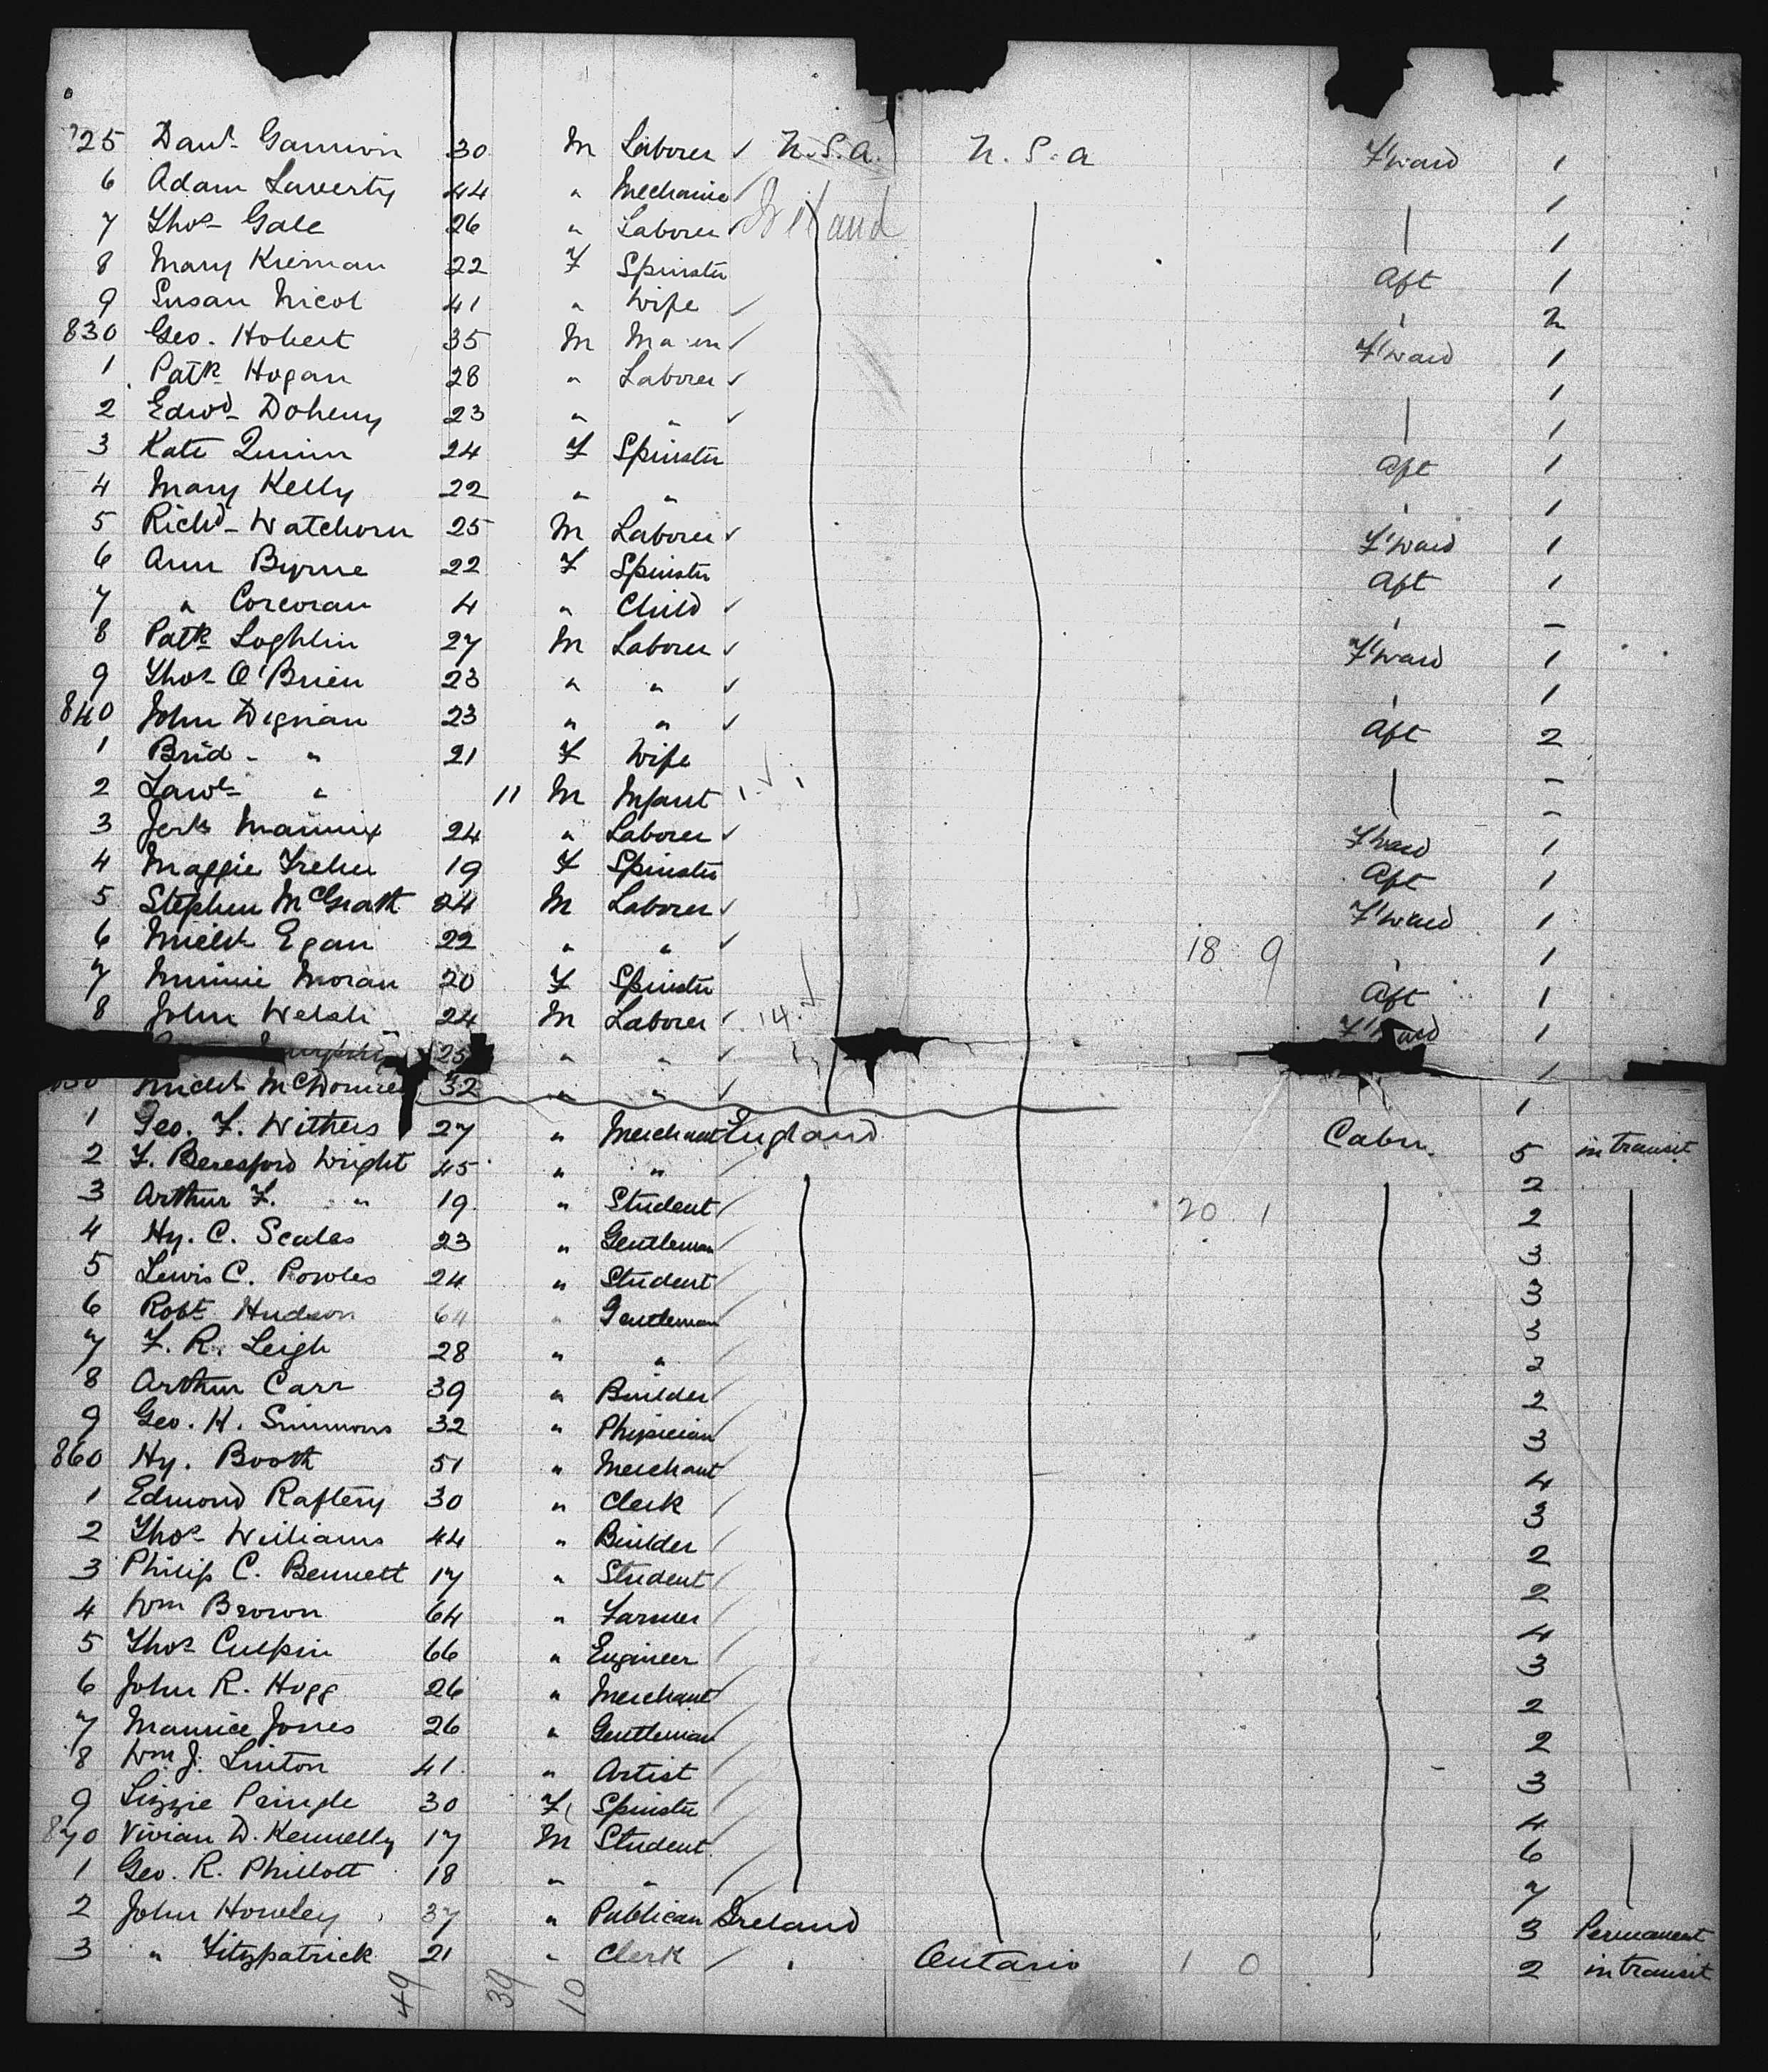 825 Danl Gannon 30 M Laborer ✓ U.S.A. U.S.a F'ward 1
6 Adam Laverty 44 " Mechanic ✓ Ireland 1
7 Thos Gale 26 " Laborer ✓ 1
8 Mary Kiernan 22 F Spinster Aft 1
9 Susan Nicol 41 " Wife ✓ " 2
830 Geo. Hobert 35 M Mason ✓ F'ward 1
1 Patk Hogan 28 " Laborer ✓ 1
2 Edwd Doheny 23 " " ✓ 1
3 Kate Quinn 24 F Spinster Aft 1
4 Mary Kelly 22 " " " 1
5 Richd Watchorn 25 M Laborer ✓ F'ward 1
6 Ann Byrne 22 F Spinster Aft 1
7 " Corcoran 4 " Child ✓ " –
8 Patk Loghlin 27 M Laborer ✓ F'ward 1
9 Thos O'Brien 23 " " ✓ " 1
840 John Dignan 23 " " ✓ Aft 2
1 Brid - " 21 F Wife –
2 Lawce " 11 M Infant ✓ –
3 Jerh Mannix 24 " Laborer ✓ F'ward 1
4 Maggie Treher 19 F Spinster Aft 1
5 Stephen McGrath 24 M Laborer ✓ F'ward 1
6 Michl Egan 22 " " ✓ 18 9 " 1
7 Minnie Moran 20 F Spinster Aft 1
8 John Welsh 24 M Laborer ✓ 14 ✓ F'ward 1
25 " " ✓ 1
Michl McDonnell 32 " " ✓ 1
1 Geo. F. Withers 27 " Merchant England Cabin 5 in transit
2 F. Beresford Wright 45 " " 2
3 Arthur F. " 19 " Student 20 1 2
4 Hy. C. Scales 23 " Gentleman 3
5 Lewis C. Powles 24 " Student 3
6 Robt Hudson 64 " Gentleman 3
7 F. R. Leigh 28 " " 2
8 Arthur Carr 39 " Builder 2
9 Geo. H. Simmons 32 " Physician 3
860 Hy. Booth 51 " Merchant 4
1 Edmond Raftery 30 " Clerk 3
2 Thos Williams 44 " Builder 2
3 Philip C. Bennett 17 " Student 2
4 Wm Brown 64 " Farmer 4
5 Thos Culpin 66 " Engineer 3
6 John R. Hogg 26 " Merchant 2
7 Maurice Jones 26 " Gentleman 2
8 Wm J. Linton 41 " Artist 3
9 Lizzie Pringle 30 F Spinster 4
870 Vivian D. Kennelly 17 M Student 6
1 Geo. R. Phillott 18 " " 7
2 John Howley 37 " Publican Ireland 3 Permanent
3 " Fitzpatrick 21 " Clerk " Ontario 1 0 2 in transit
49 39 10